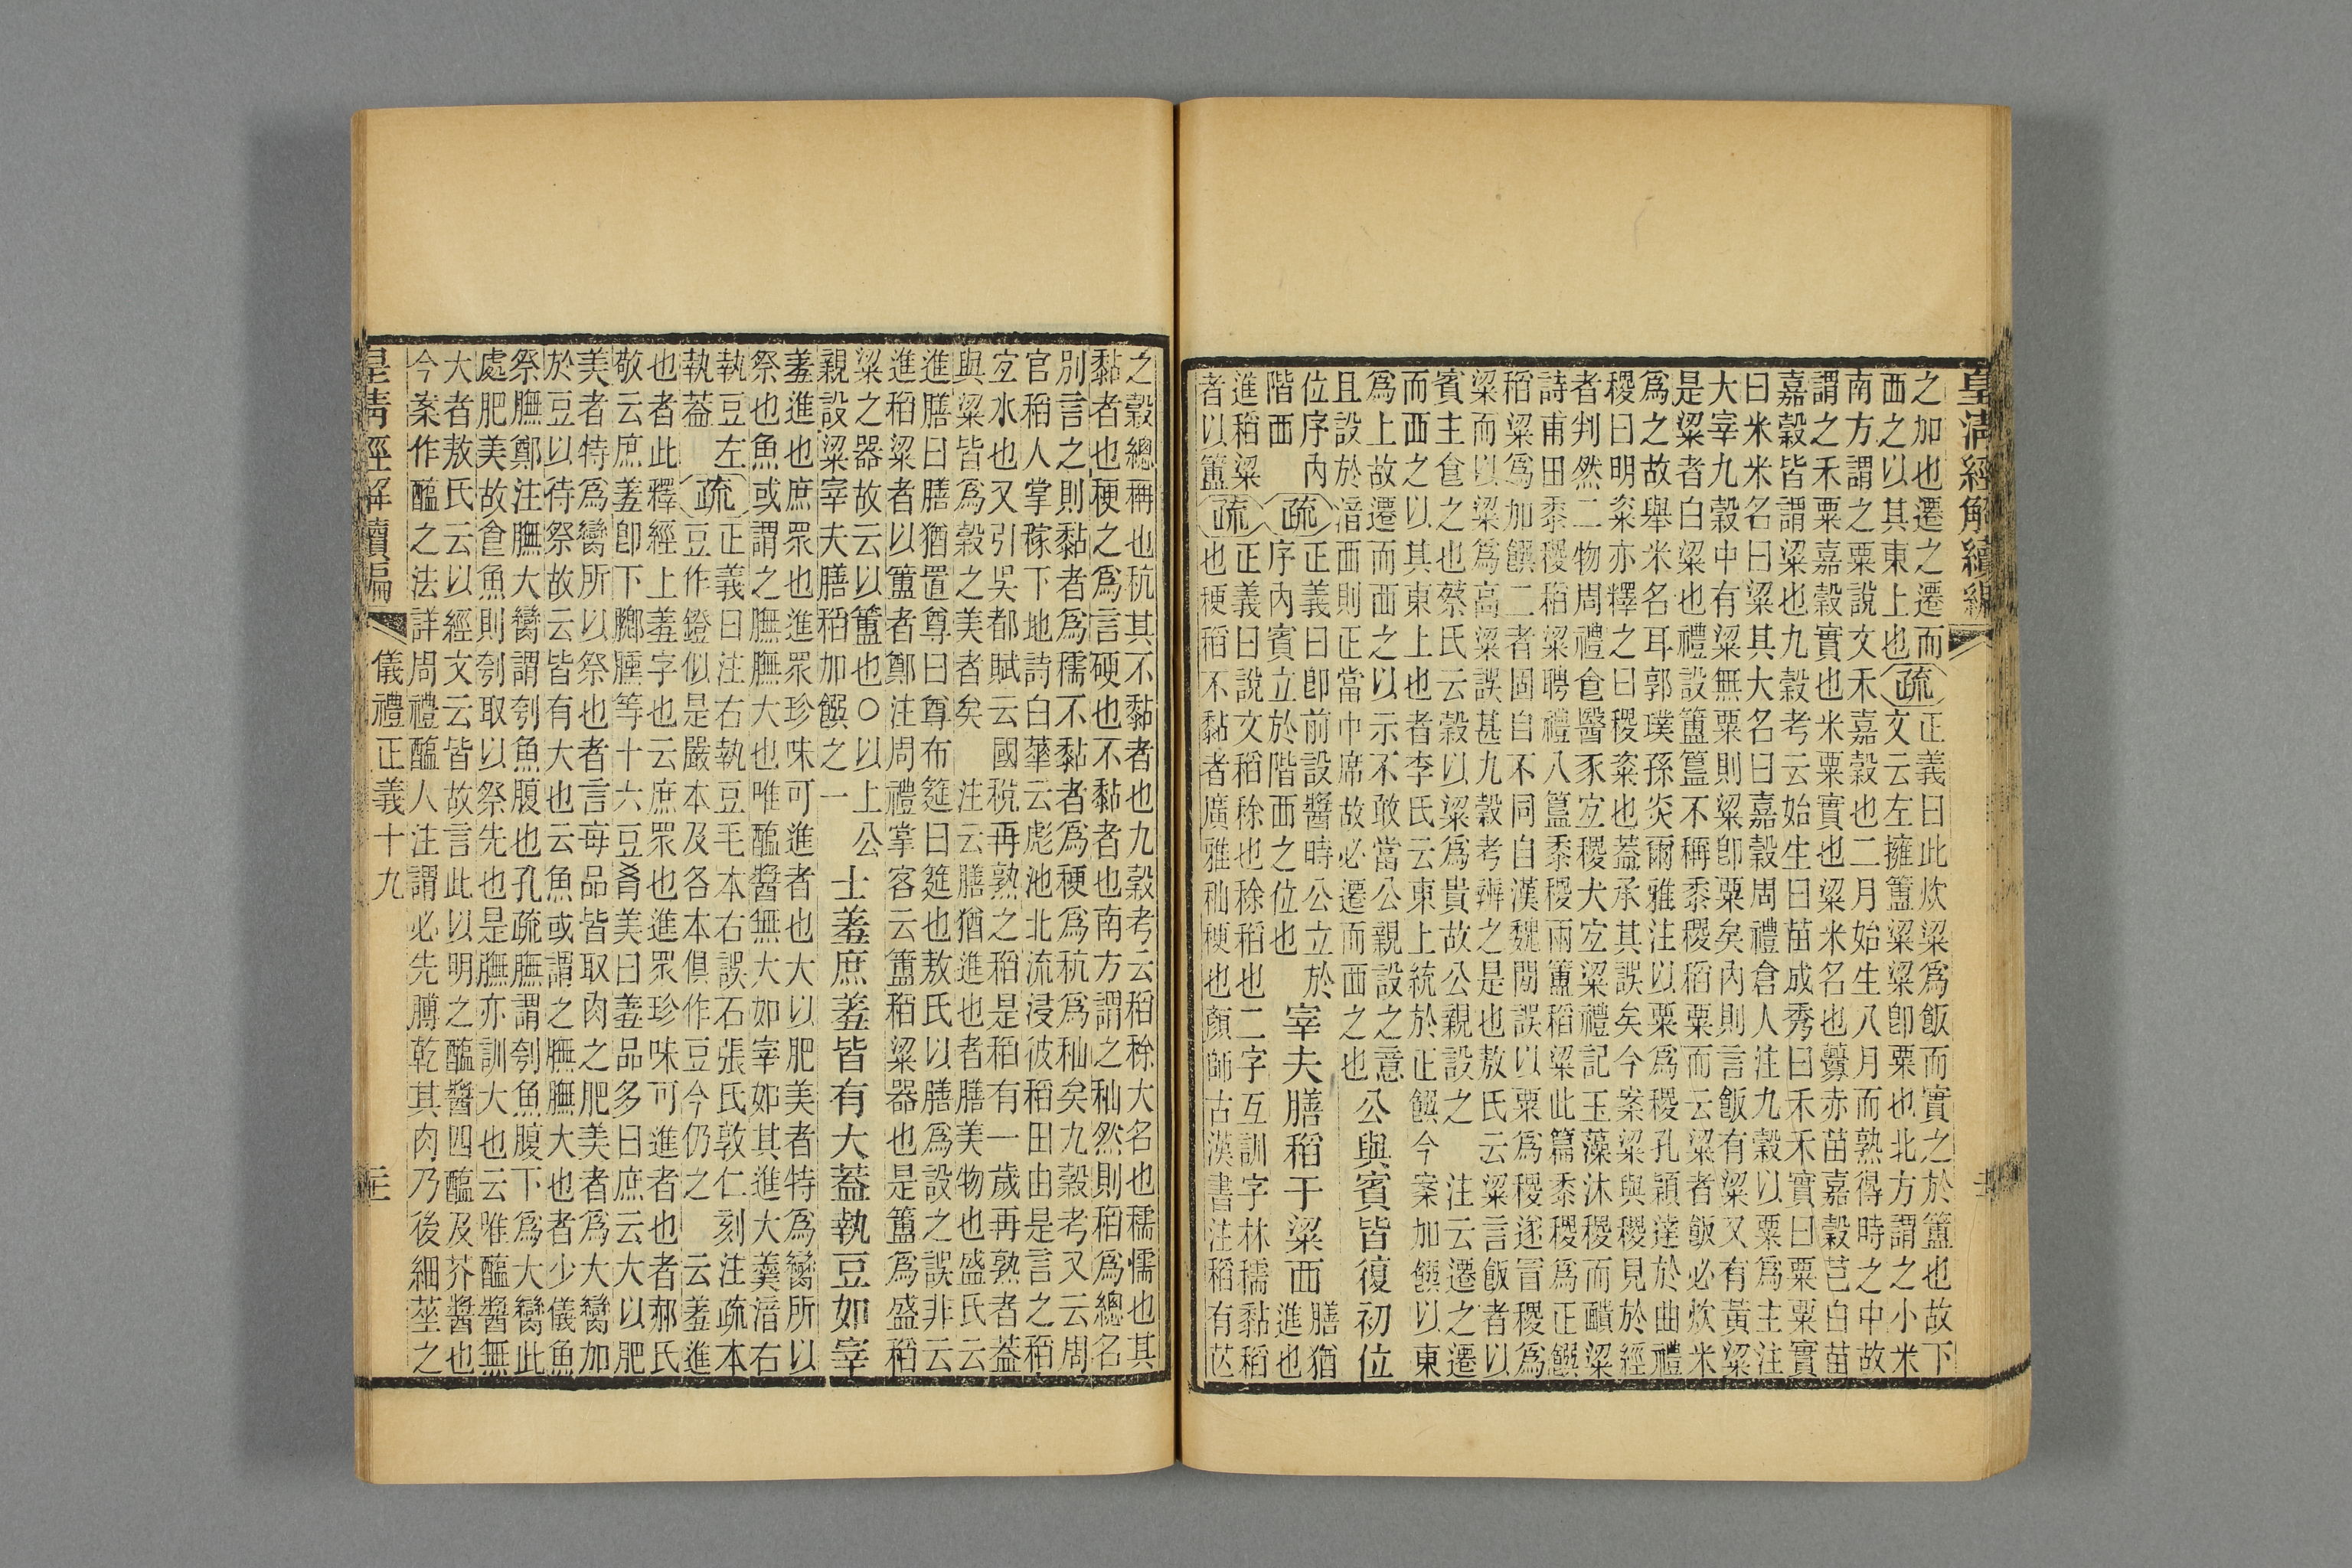 皇清經解續編
之加也遷之遷而
西之以其東上也
疏
正義曰此炊粱爲飯而實之於簠也故下
文云左擁簠粱粱卽粟也北方謂之小米
南方謂之粟說文禾嘉穀也二月始生八月而熟得時之中故
謂之禾粟嘉穀實也米粟實也粱米名也虋赤苗嘉穀芑白苗
嘉穀皆謂粱也九穀考云始生曰苗成秀曰禾禾實曰粟粟實
曰米米名曰粱其大名曰嘉穀周禮倉人注九穀以粟爲主注
大宰九穀中有粱無粟則粱卽粟矣內則言飯有粱又有黃粱
是粱者白粱也禮設簠簋不稱黍稷稻粟而云粱者飯必炊米
爲之故舉米名耳郭璞孫炎爾雅注以粟爲稷孔穎達於曲禮
稷曰明粢亦釋之曰稷粢也蓋承其誤矣今案粱與稷見於經
者判然二物周禮食醫豕宜稷犬宜粱禮記玉藻沐稷而靧粱
詩甫田黍稷稻粱聘禮八簋黍稷兩簠稻粱此篇黍稷爲正饌
稻粱爲加饌二者固自不同自漢魏閒誤以粟爲稷遂冒稷爲
粱而以粱爲高粱誤甚九穀考辨之是也敖氏云粱言飯者以
賓主食之也蔡氏云穀以粱爲貴故公親設之 注云遷之遷
而西之以其東上也者李氏云東上統於正饌今案加饌以東
爲上故遷而西之以示不敢當公親設之意
且設於湆西則正當中席故必遷而西之也
公與賓皆復初位
位序內
階西
疏
正義曰卽前設醬時公立於
序內賓立於階西之位也
宰夫膳稻于粱西
膳猶
進也
進稻粱
者以簠
疏
正義曰說文稻稌也稌稻也二字互訓字林穤黏稻
也稉稻不黏者廣雅秈稉也顏師古漢書注稻有芒
之穀總稱也秔其不黏者也九穀考云稻稌大名也穤懦也其
黏者也稉之爲言硬也不黏者也南方謂之秈然則稻爲總名
別言之則黏者爲穤不黏者爲稉爲秔爲秈矣九穀考又云周
官稻人掌稼下地詩白華云彪池北流浸彼稻田由是言之稻
宜水也又引吳都賦云國稅再熟之稻是稻有一歲再熟者蓋
與粱皆爲穀之美者矣 注云膳猶進也者膳美物也盛氏云
進膳曰膳猶置尊曰尊布筵曰筵也敖氏以膳爲設之誤非云
進稻粱者以簠者鄭注周禮掌客云簠稻粱器也是簠爲盛稻
粱之器故云以簠也○以上公
親設粱宰夫膳稻加饌之一
士羞庶羞皆有大蓋執豆如宰
羞進也庶眾也進眾珍味可進者也大以肥美者特爲臠所以
祭也魚或謂之膴膴大也唯醢醬無大如宰如其進大羹湆右
執豆左
執蓋
疏
正義曰注右執豆毛本右誤石張氏敦仁刻注疏本
豆作鐙似是嚴本及各本俱作豆今仍之 云羞進
也者此釋經上羞字也云庶眾也進眾珍味可進者也者郝氏
敬云庶羞卽下膷臐等十六豆肴美曰羞品多曰庶云大以肥
美者特爲臠所以祭也者言每品皆取肉之肥美者爲大臠加
於豆以待祭故云皆有大也云魚或謂之膴膴大也者少儀魚
祭膴鄭注膴大臠謂刳魚腹也孔疏膴謂刳魚腹下爲大臠此
處肥美故食魚則刳取以祭先也是膴亦訓大也云唯醢醬無
大者敖氏云以經文云皆故言此以明之醢醬四醢及芥醬也
今案作醢之法詳周禮醢人注謂必先膊乾其肉乃後細莝之
皇清經解續編
儀禮正義十九